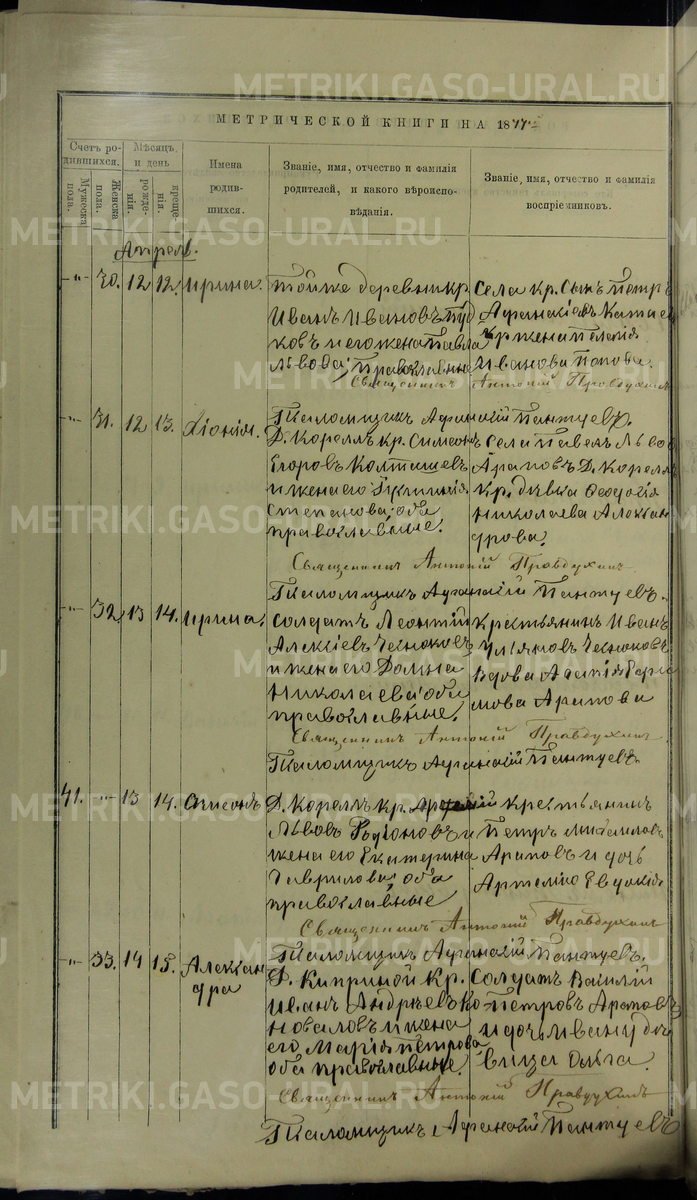 METRIKI.GASO-URAL.RU
МЕТРИЧЕСКОЙ КНИГИ НА 1877
Счетъ родившихся.
Мужеска пола.
Женска пола.
Мѣсяцъ и день
рожденія.
крещенія.
Имена родившихся.
Званіе, имя, отчество и фамилія родителей, и какого вѣроисповѣданія.
Званіе, имя, отчество и фамилія воспріемниковъ.
Апрель.
-"- 30. 12 12. Ирина.
Тойже деревни кр.
Иванъ Ивановъ
ковъ и его жена Павла
Львова; Православны
Села кр. Сынъ Петръ
Афанасіевъ
кр жена Пелагія
Иванова Попова.
Священникъ Антоній Правдухинъ
Псаломщикъ Афанасій Пантуевъ.
-"- 31. 12 13. Хіонія.
Д. Корелъ кр. Симеонъ
Егоровъ Колташевъ
и жена его
Степанова; оба
православные.
Села Павелъ Львов
Араповъ Д. Корелъ
кр. дѣвка Феодосія
Николаева Алексан
дрова.
Священникъ Антоній Правдухинъ
Псаломщикъ Афанасій Пантуевъ.
-"- 32 13 14. Ирина.
Солдатъ Леонтій
Алексіевъ Чесноковъ
и жена его Домна
Николаева; оба
православные.
Крестьянинъ Иванъ
Ульяновъ Чесноковъ
Вдова
мова Арапова
Священникъ Антоній Правдухинъ
Псаломщикъ Афанасій Пантуевъ.
41. -"- 13 14. Симеонъ
Д. Корелъ кр.
Львовъ Родіоновъ и
жена его Екатерина
Гаврилова; оба
православные
крестьянинъ
Петръ Михаиловъ
Араповъ и дочь
Евдокія
Священникъ Антоній Правдухинъ
Псаломщикъ Афанасій Пантуевъ.
-"- 33. 14 15. Алексан
дра
Д. Киприной Кр.
Иванъ Андрѣевъ Ко
новаловъ и жена
его Марія Петрова
оба православные.
Солдатъ Василій
Петровъ Араповъ
и дочь Ивану
вица Ольга.
Священникъ Антоній Правдухинъ
Псаломщикъ Афанасій Пантуевъ